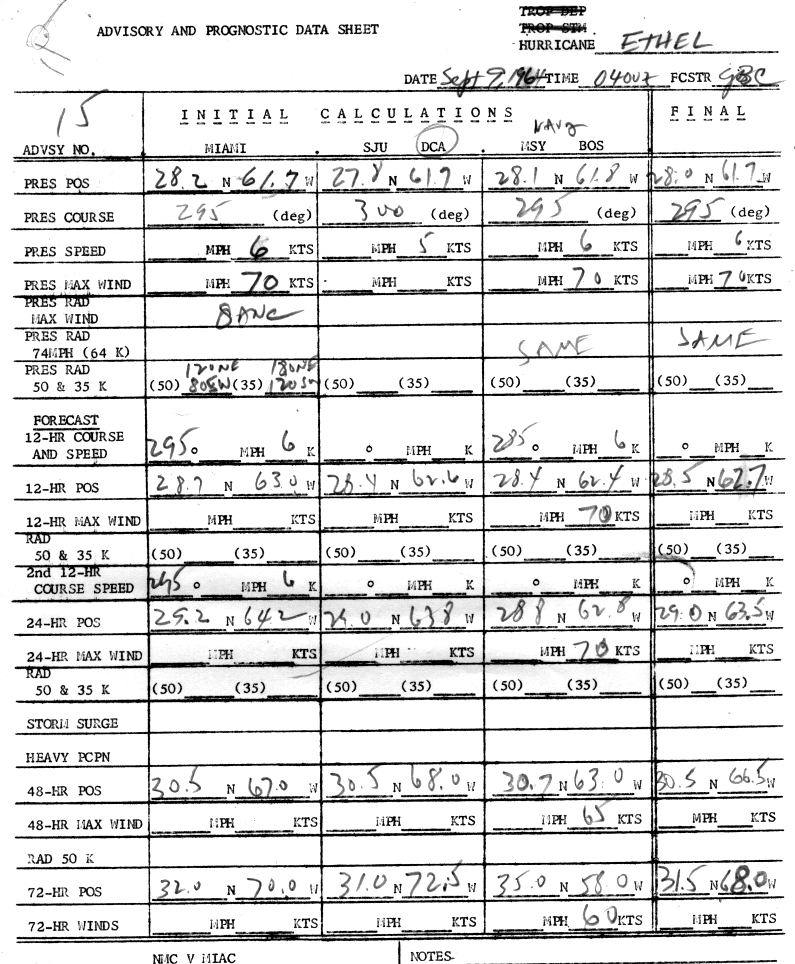 TROP DEP
TROP STM
ADVISORY AND PROGNOSTIC DATA SHEET
HURRICANE ETHEL
DATE Sept 9, 1964 TIME 0400Z FCSTR GBC
15 INITIAL CALCULATIONS FINAL
NAVY
ADVSY NO. MIAMI SJU DCA MSY BOS
PRES POS 28.2 N 61.7 W 27.8 N 61.9 W 28.1 N 61.8 W 28.0 N 61.7 W
PRES COURSE 295 (deg) 300 (deg) 295 (deg) 295 (deg)
PRES SPEED MPH 6 KTS MPH 5 KTS MPH 6 KTS MPH 6 KTS
PRES MAX WIND MPH 70 KTS MPH KTS MPH 70 KTS MPH 70 KTS
PRES RAD
MAX WIND
PRES RAD
74MPH (64 K) SAME SAME
PRES RAD 120NE 180NE
50 & 35 K (50) 80SW (35) 120SW (50) (35) (50) (35) (50) (35)
FORECAST
12-HR COURSE
AND SPEED 295° MPH 6 K ° MPH K 285° MPH 6 K ° MPH K
12-HR POS 28.7 N 63.0 W 28.4 N 62.6 W 28.4 N 62.4 W 28.5 N 62.7 W
12-HR MAX WIND MPH KTS MPH KTS MPH 70 KTS MPH KTS
RAD
50 & 35 K (50) (35) (50) (35) (50) (35) (50) (35)
2nd 12-HR
COURSE SPEED 295° MPH 6 K ° MPH K ° MPH K ° MPH K
24-HR POS 29.2 N 64.2 W 29.0 N 63.8 W 28.8 N 62.8 W 29.0 N 63.5 W
24-HR MAX WIND MPH KTS MPH KTS MPH 70 KTS MPH KTS
RAD
50 & 35 K (50) (35) (50) (35) (50) (35) (50) (35)
STORM SURGE
HEAVY PCPN
48-HR POS 30.5 N 67.0 W 30.5 N 68.0 W 30.7 N 63.0 W 30.5 N 66.5 W
48-HR MAX WIND MPH KTS MPH KTS MPH 65 KTS MPH KTS
RAD 50 K
72-HR POS 32.0 N 70.0 W 31.0 N 72.5 W 35.0 N 58.0 W 31.5 N 68.0 W
72-HR WINDS MPH KTS MPH KTS MPH 60 KTS MPH KTS
NMC V MIAC NOTES